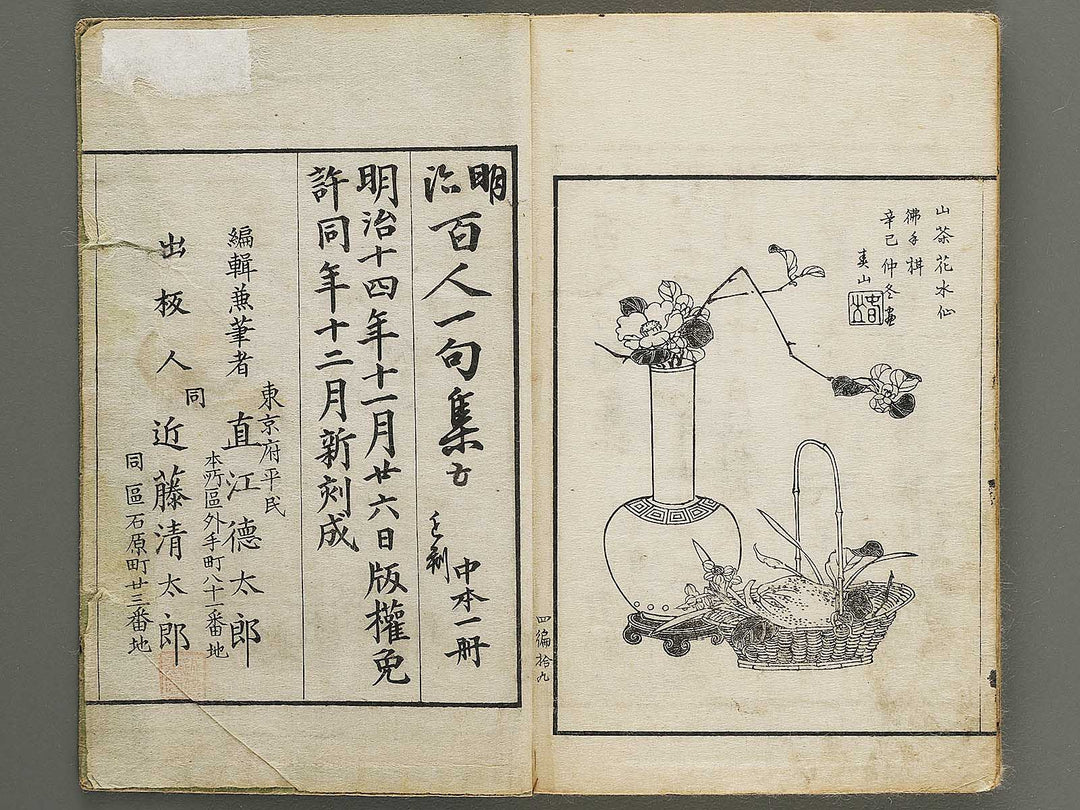 山茶花水仙
彿手柑
辛巳仲冬畫
春山
四編拾九
明治百人一句集
中本一冊
明治十四年十一月廿六日版權免
許同年十二月新刻成
東京府平民
編輯兼筆者 直江德太郎
本所區外手町八十一番地
同
出板人 近藤清太郎
同區石原町廿三番地